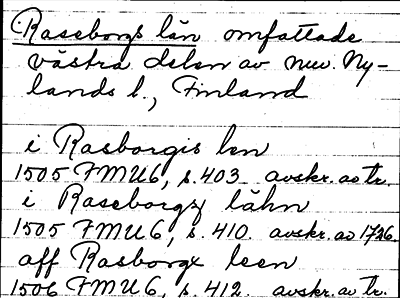 Raseborgs län omfattade
västra delen av nuv. Ny-
lands l., Finland
i Rasborgis len
1505 FMU6, s. 403 avskr. av tr.
i Raseborgx lähn
1505 FMU6, s. 410. avskr. av 1726.
aff Rasborgx leen
1506 FMU6, s. 412. avskr. av tr.